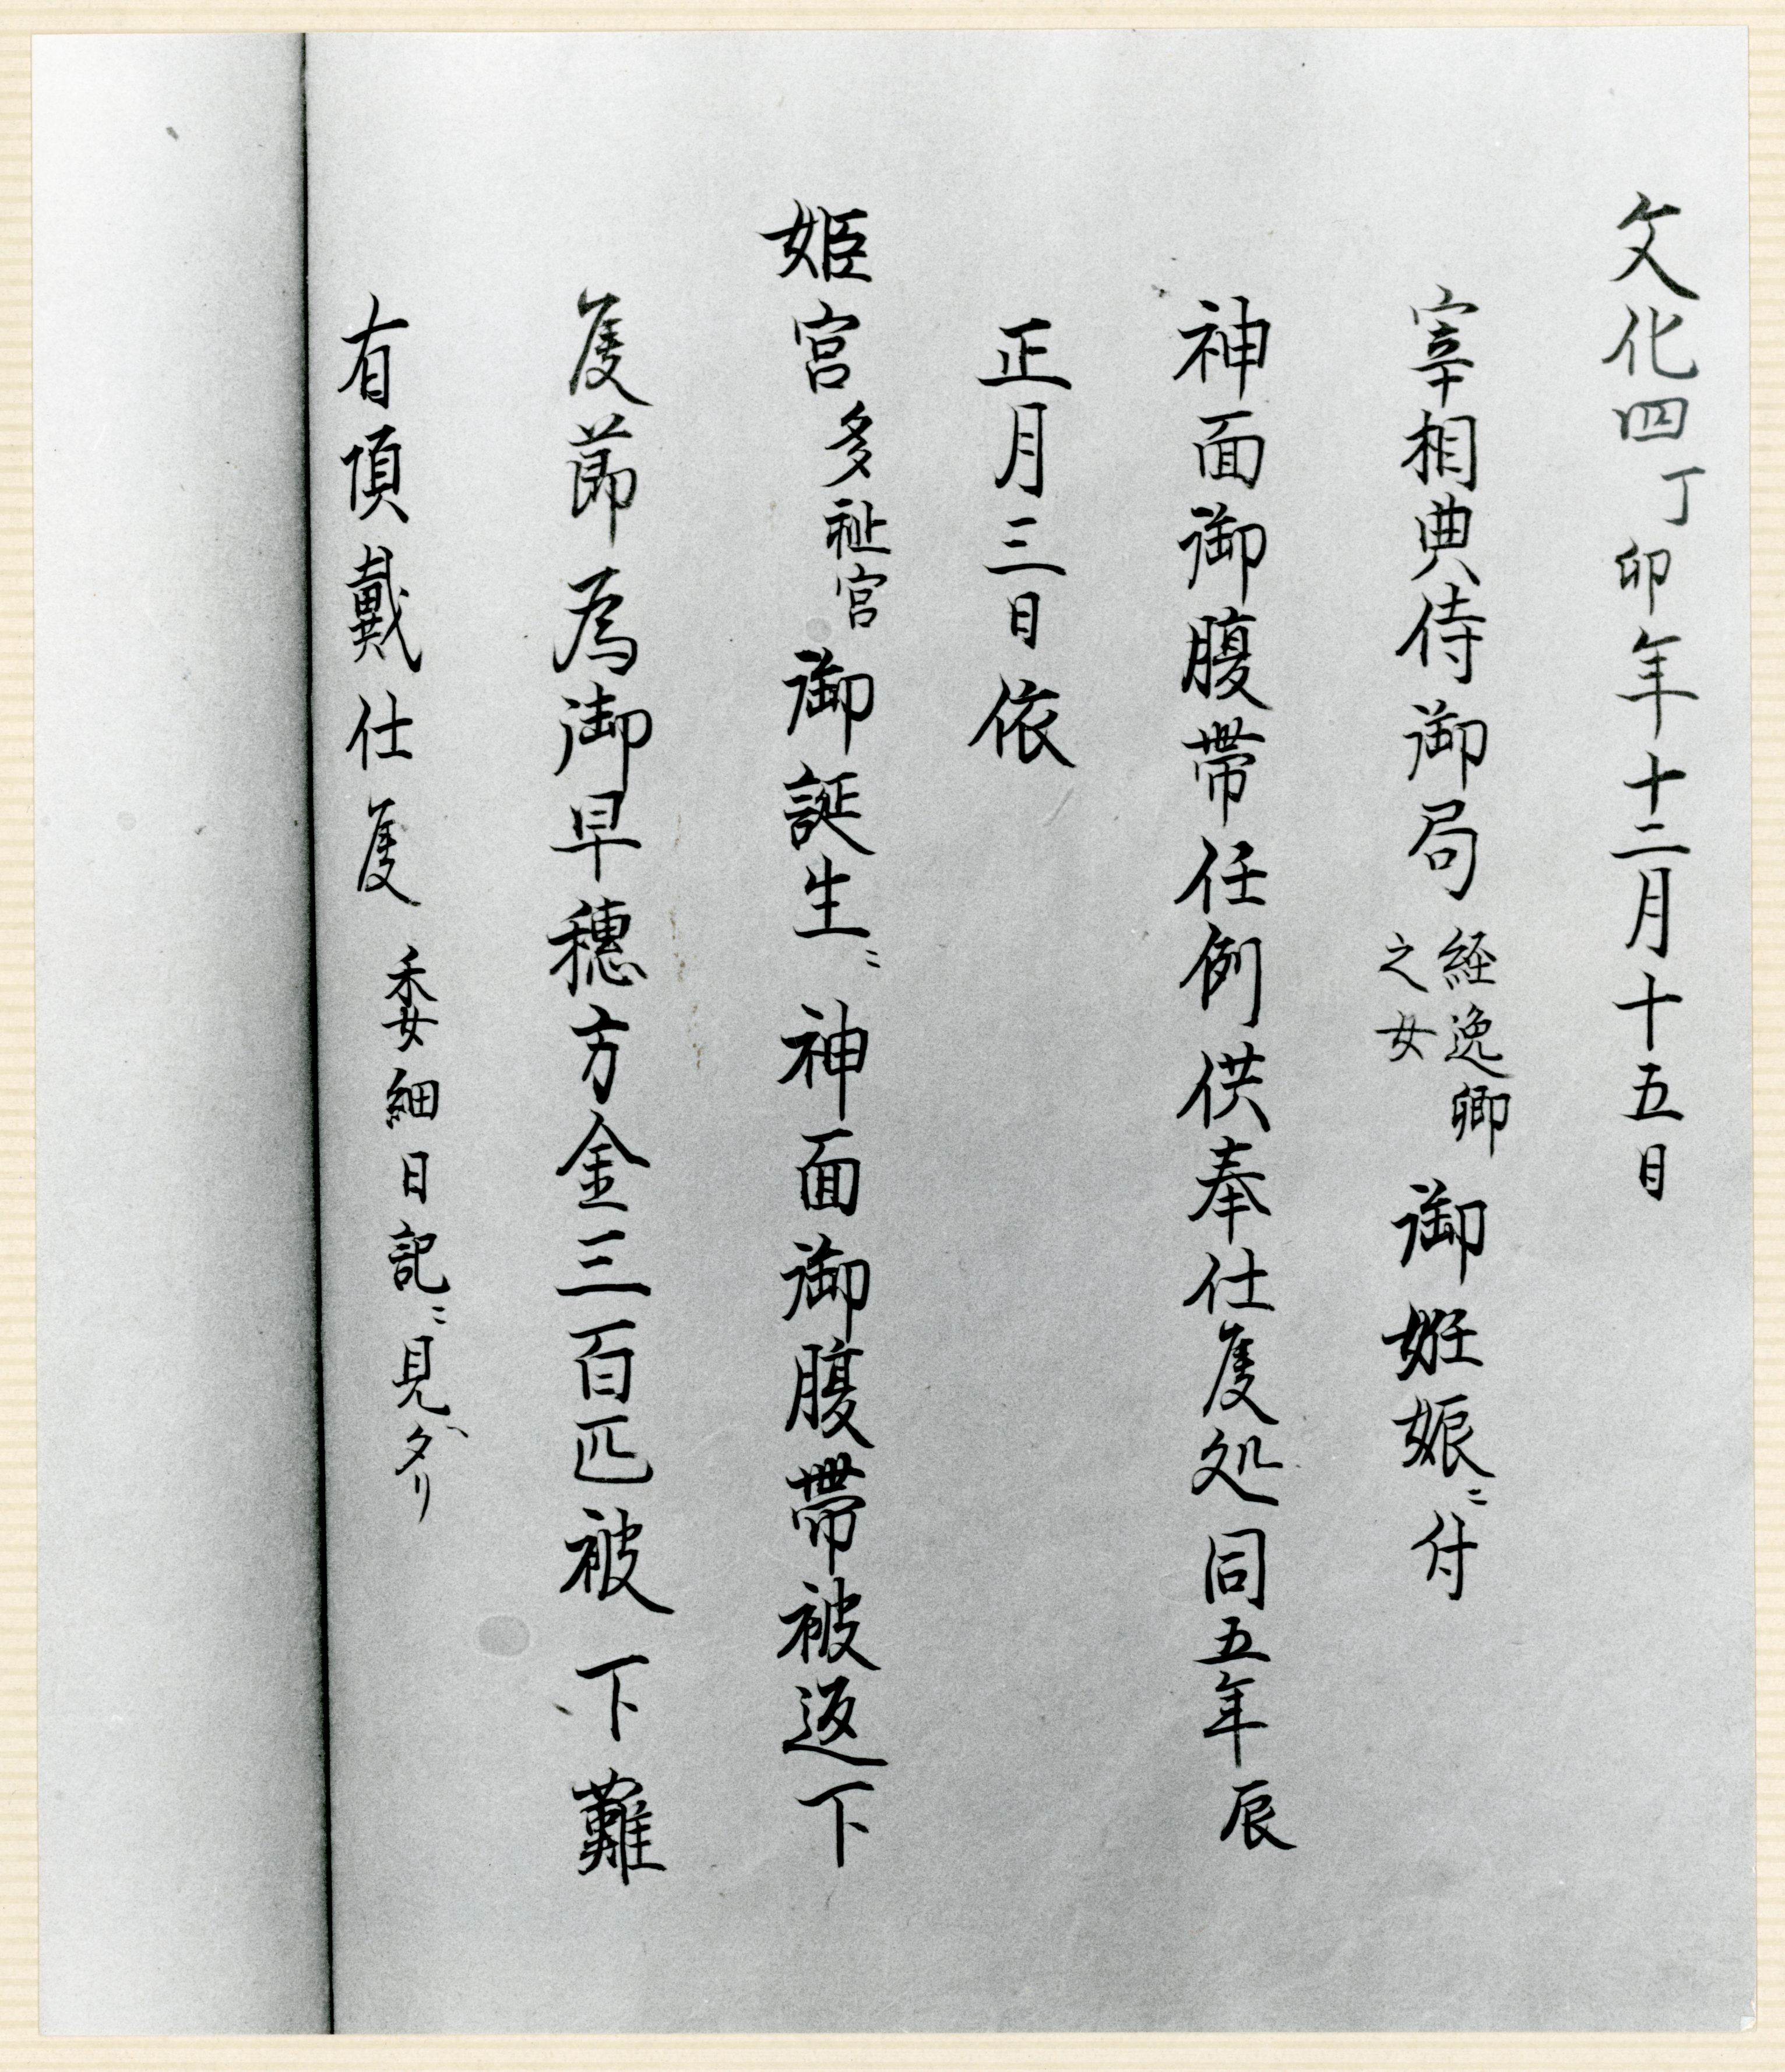 文化四丁卯年十二月十五日
宰相典侍御局経逸卿之女御妊娠ニ付
神面御腹帯任例供奉仕度処同五年辰
正月三日依
姫宮多祉宮御誕生ニ神面御腹帯被返下
度節為御早穂方金三百匹被下難
有頂戴仕度委細日記ニ見ヘタリ